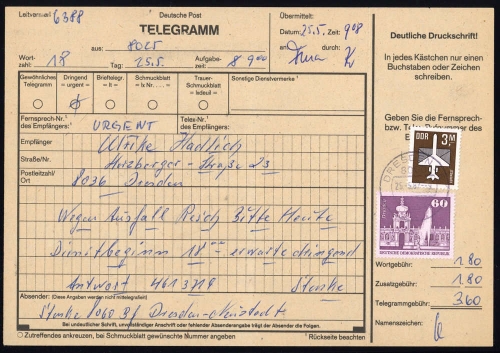 Leitvermerk 6388
Deutsche Post
TELEGRAMM
Übermittelt:
Datum: 25.5. Zeit: 908
aus: 8025
an durch:
Wortzahl: 18 Tag: 25.5. Aufgabezeit: 8 900
Deutliche Druckschrift!
In jedes Kästchen nur einen
Buchstaben oder Zeichen
schreiben.
Gewöhnliches Telegramm
Dringend = urgent =
Briefteleg. = lt =
Schmuckblatt = lx Nr. . . . =
Trauer-Schmuckblatt = lxdeuil =
Sonstige Dienstvermerke
Fernsprech-Nr.¹ des Empfängers:
URGENT
Telex-Nr.¹ des Empfängers:
Geben Sie die Fernsprech-
bzw. Telex-Nummer des
Empfänger
Ulrike Hädlich
Straße/Nr.
Herzberger-Straße 23
Postleitzahl/Ort
8036 Dresden
DDR 3M
DRESDEN
60
Dresden
DEUTSCHE DEMOKRATISCHE REPUBLIK
Wegen Ausfall Reich Bitte Heute
Dienstbeginn erwarte dringend
Antwort 4613714 Starke
Wortgebühr: 1.80
Zusatzgebühr: 1.80
Telegrammgebühr: 3.60
Namenszeichen:
Absender: (Diese Angaben werden nicht mittelegrafiert)
Starke 8060 Bf Dresden-Neustadt
Bei undeutlicher Schrift, unvollständiger Anschrift oder fehlender Absenderangabe trägt der Absender die Folgen.
Zutreffendes ankreuzen, bei Schmuckblatt gewünschte Nummer angeben
¹ Rückseite beachten